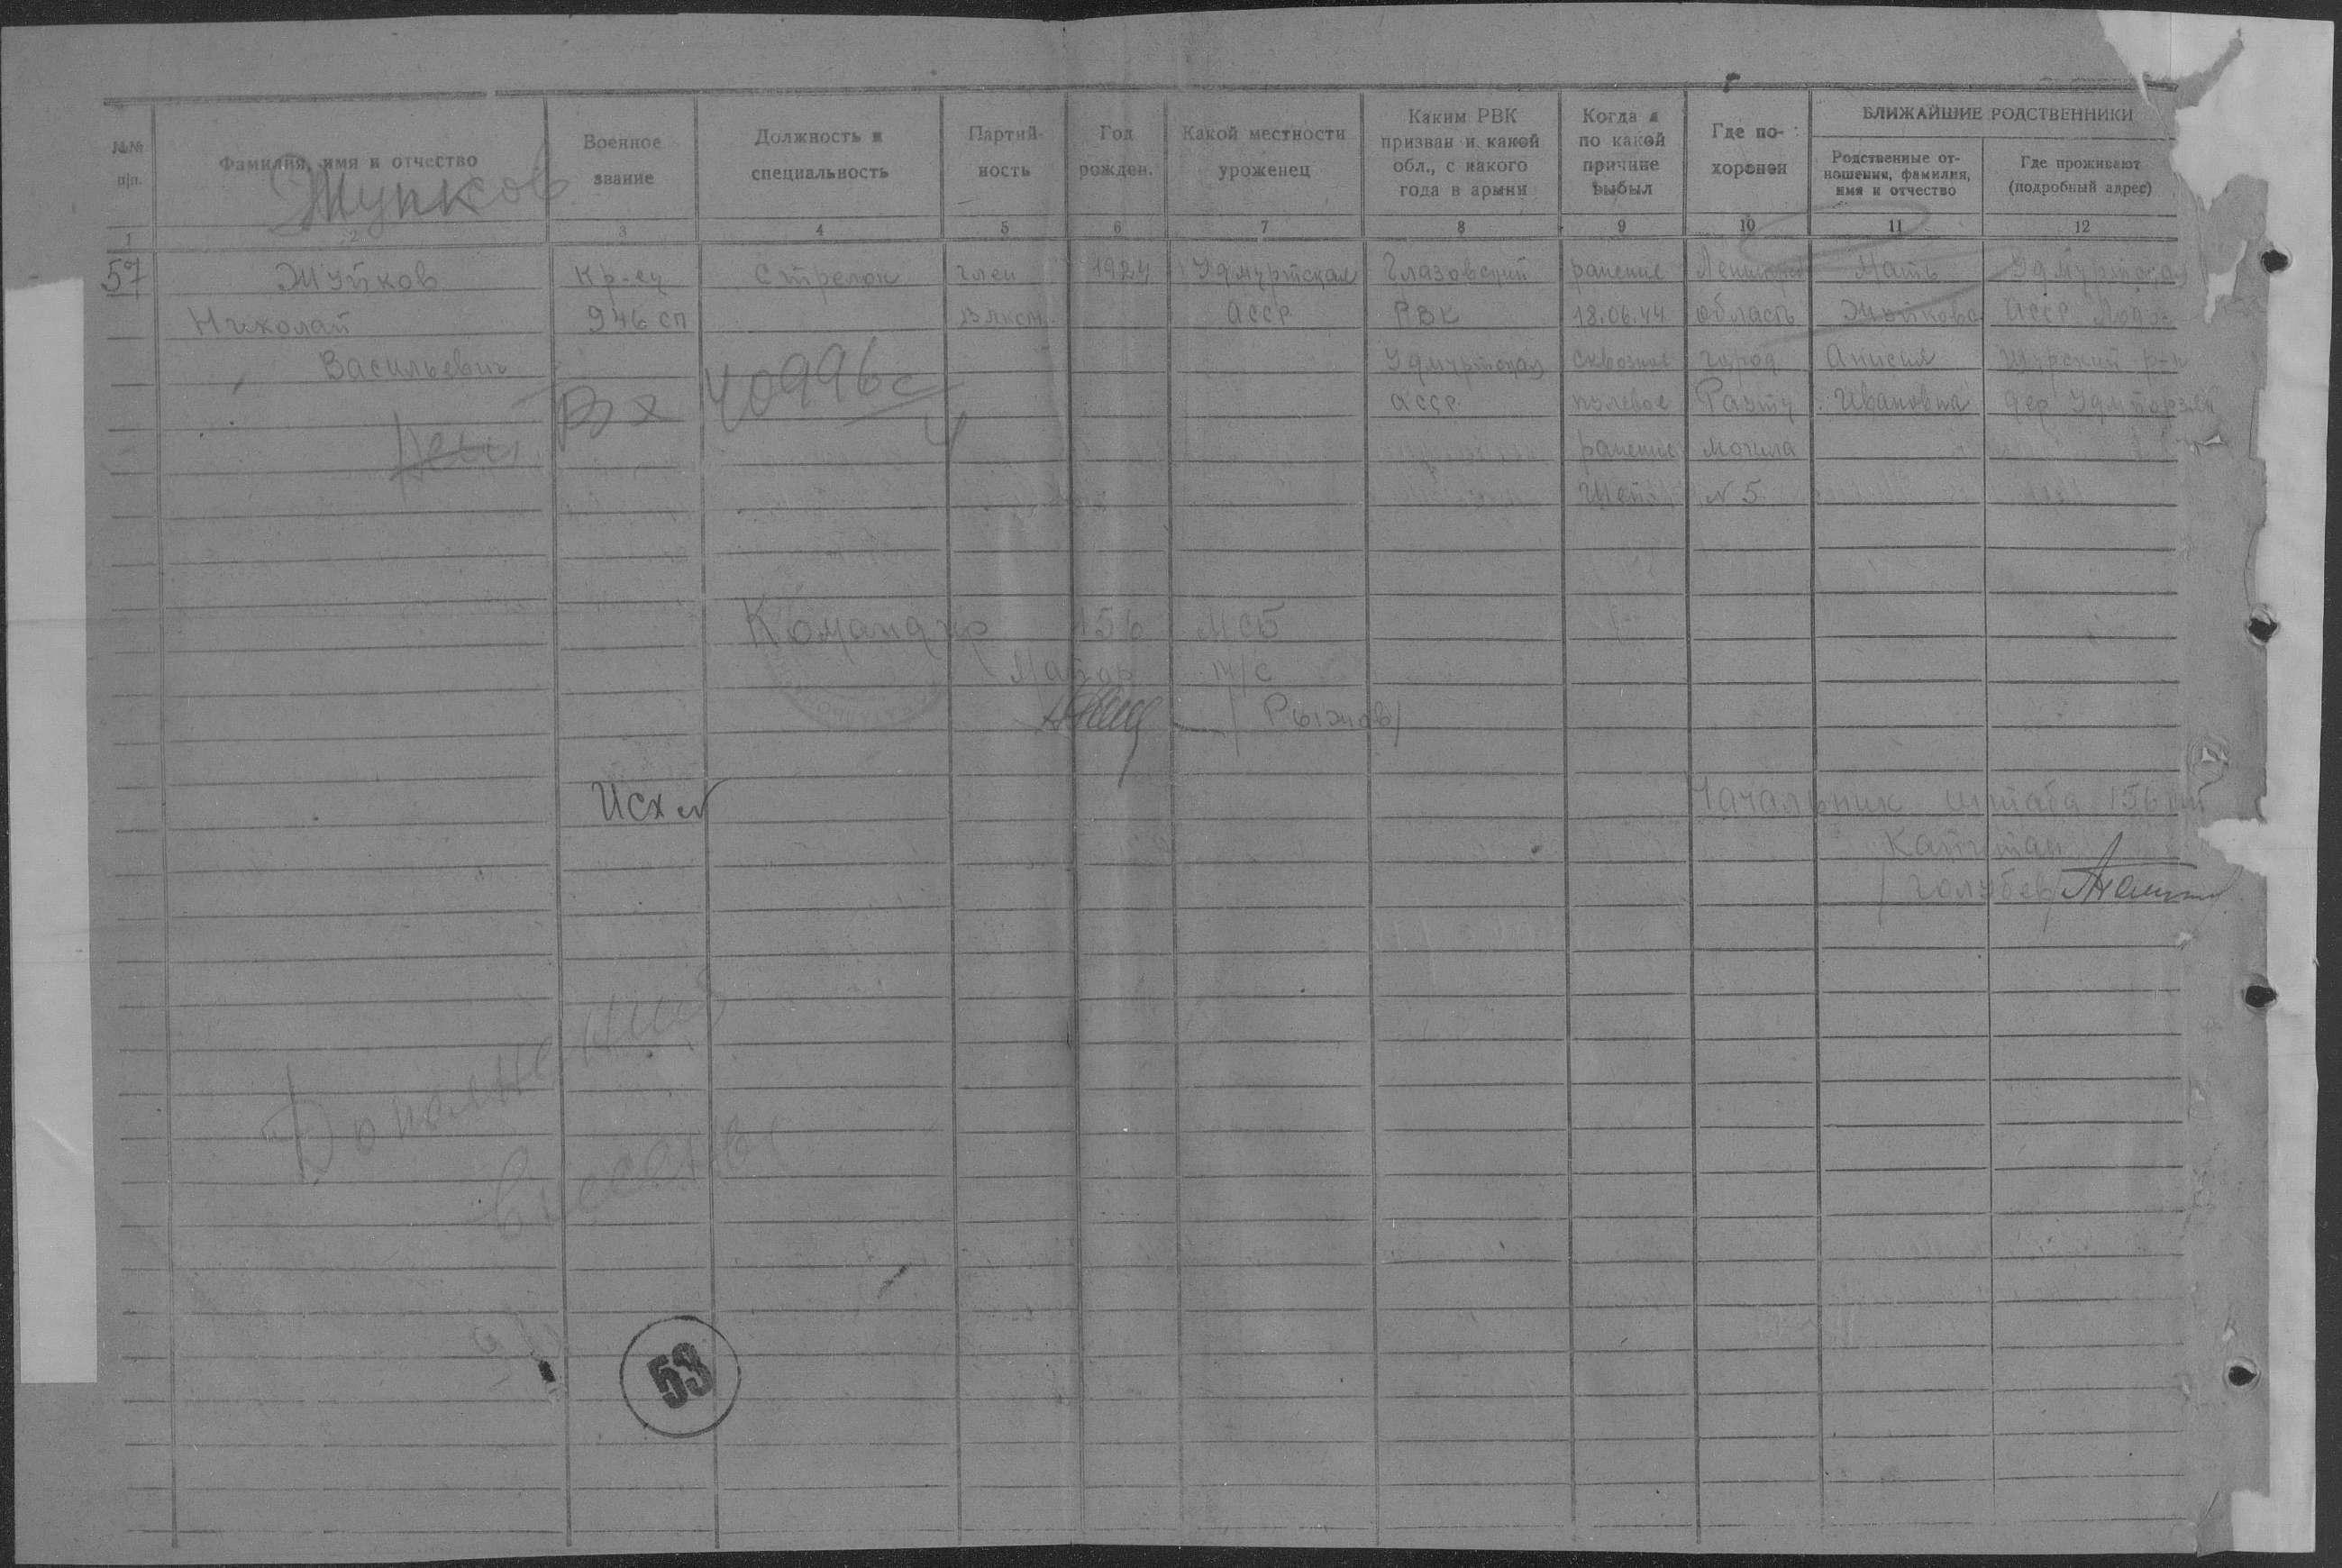 №№ п/п.
Фамилия, имя и отчество
Военное звание
Должность и специальность
Партий-ность
Год рожден.
Какой местности уроженец
Каким РВК призван и какой обл., с какого года в армии
Когда и по какой причине выбыл
Где по-хоронен
БЛИЖАЙШИЕ РОДСТВЕННИКИ
Родственные от-ношения, фамилия, имя и отчество
Где проживают (подробный адрес)
Жупков
1 2 3 4 5 6 7 8 9 10 11 12
57 Жуйков Кр-ец Стрелок член 1924 Удмуртская Глазовский ранение Мать Удмуртская
Николай 946 сп ВЛКСМ АССР РВК 18.06.44 область АССР
Васильевич Удмуртская сквозное город Анисия р-н
Вх 40996с АССР полевое Рауту Ивановна дер
4
ранение могила
N 5
Командир 156 МСБ
Майор м/с
/Рыжков/
Исх N
Начальник штаба 156
Капитан
/Голубев/
Дополнения
53